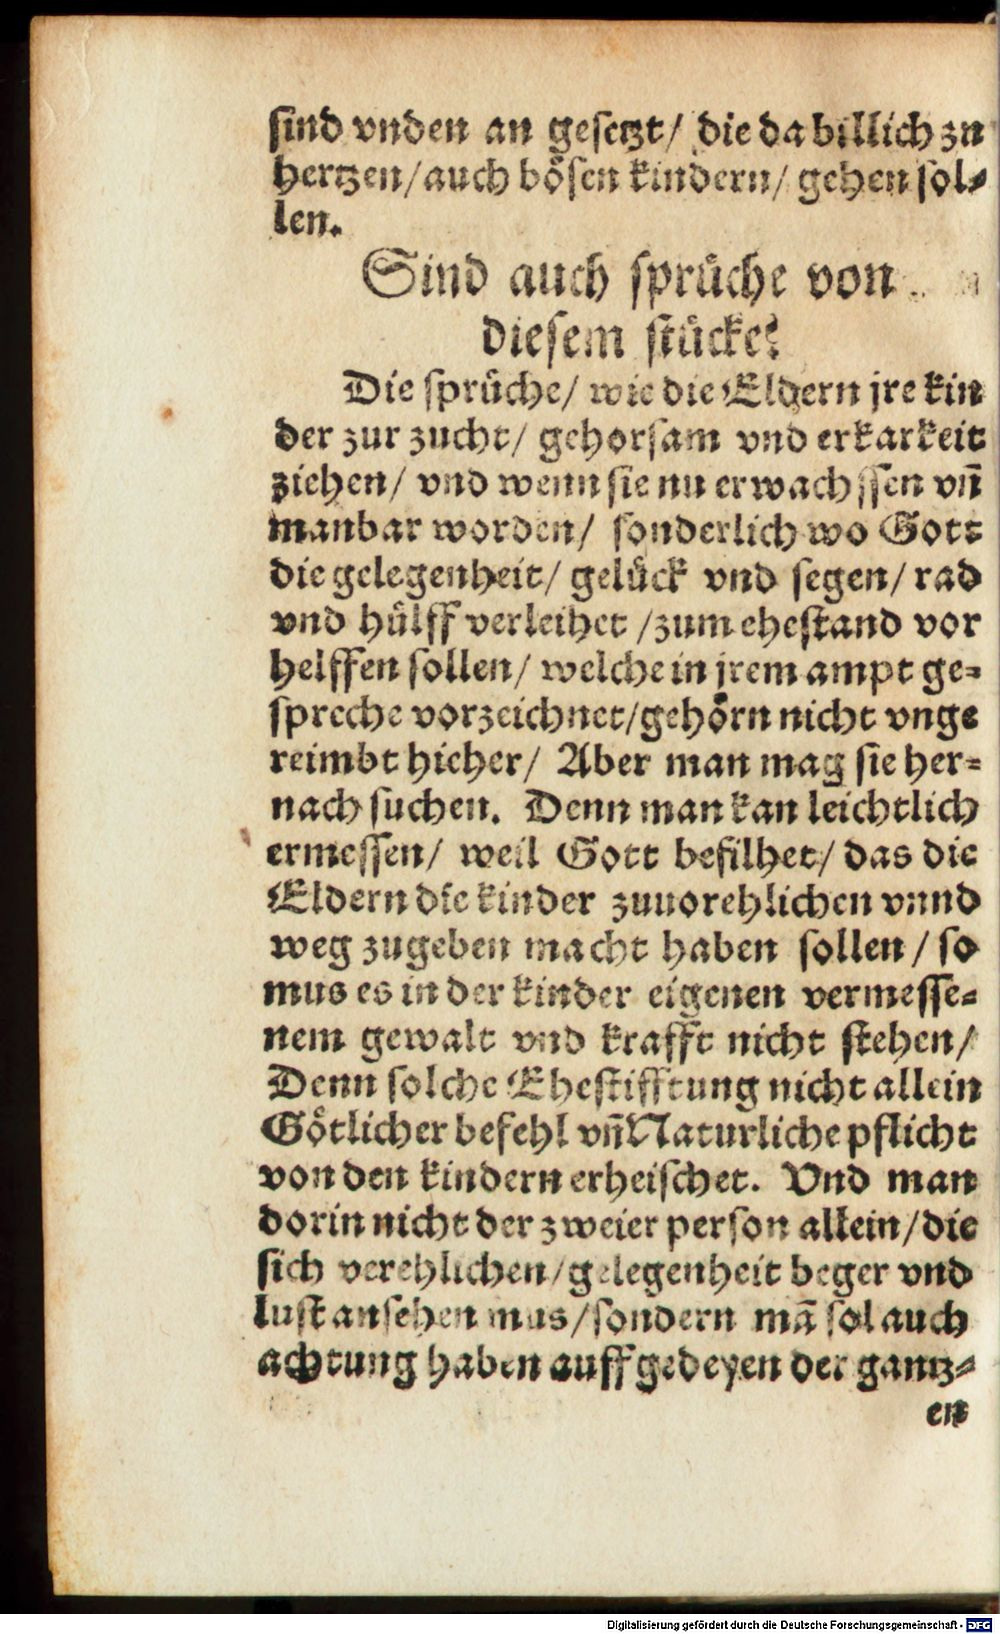 sind vnden an gesetzt/ die da billich zu
hertzen/auch bösen kindern/ gehen sol-
len.
Sind auch sprüche von
diesem stücke?
Die sprüche/ wie die Eldern jre kin
der zur zucht/ gehorsam vnd erkarkeit
ziehen/ vnd wenn sie nu erwachssen vn̄
manbar worden/ sonderlich wo Gott
die gelegenheit/ gelück vnd segen/ rad
vnd hülff verleihet /zum ehestand vor
helffen sollen/ welche in jrem ampt ge-
spreche vorzeichnet/gehörn nicht vnge
reimbt hieher/ Aber man mag sie her-
nach suchen. Denn man kan leichtlich
ermessen/ weil Gott befilhet/ das die
Eldern die kinder zuuorehlichen vnnd
weg zugeben macht haben sollen/ so
mus es in der kinder eigenen vermesse-
nem gewalt vnd krafft nicht stehen/
Denn solche Ehestifftung nicht allein
Götlicher befehl vn̄ Naturliche pflicht
von den kindern erheischet. Vnd man
dorin nicht der zweier person allein/die
sich verehlichen/gelegenheit beger vnd
lust ansehen mus/sondern mā sol auch
achtung haben auff gedeyen der gantz-
en
Digitalisierung gefördert durch die Deutsche Forschungsgemeinschaft - DFG